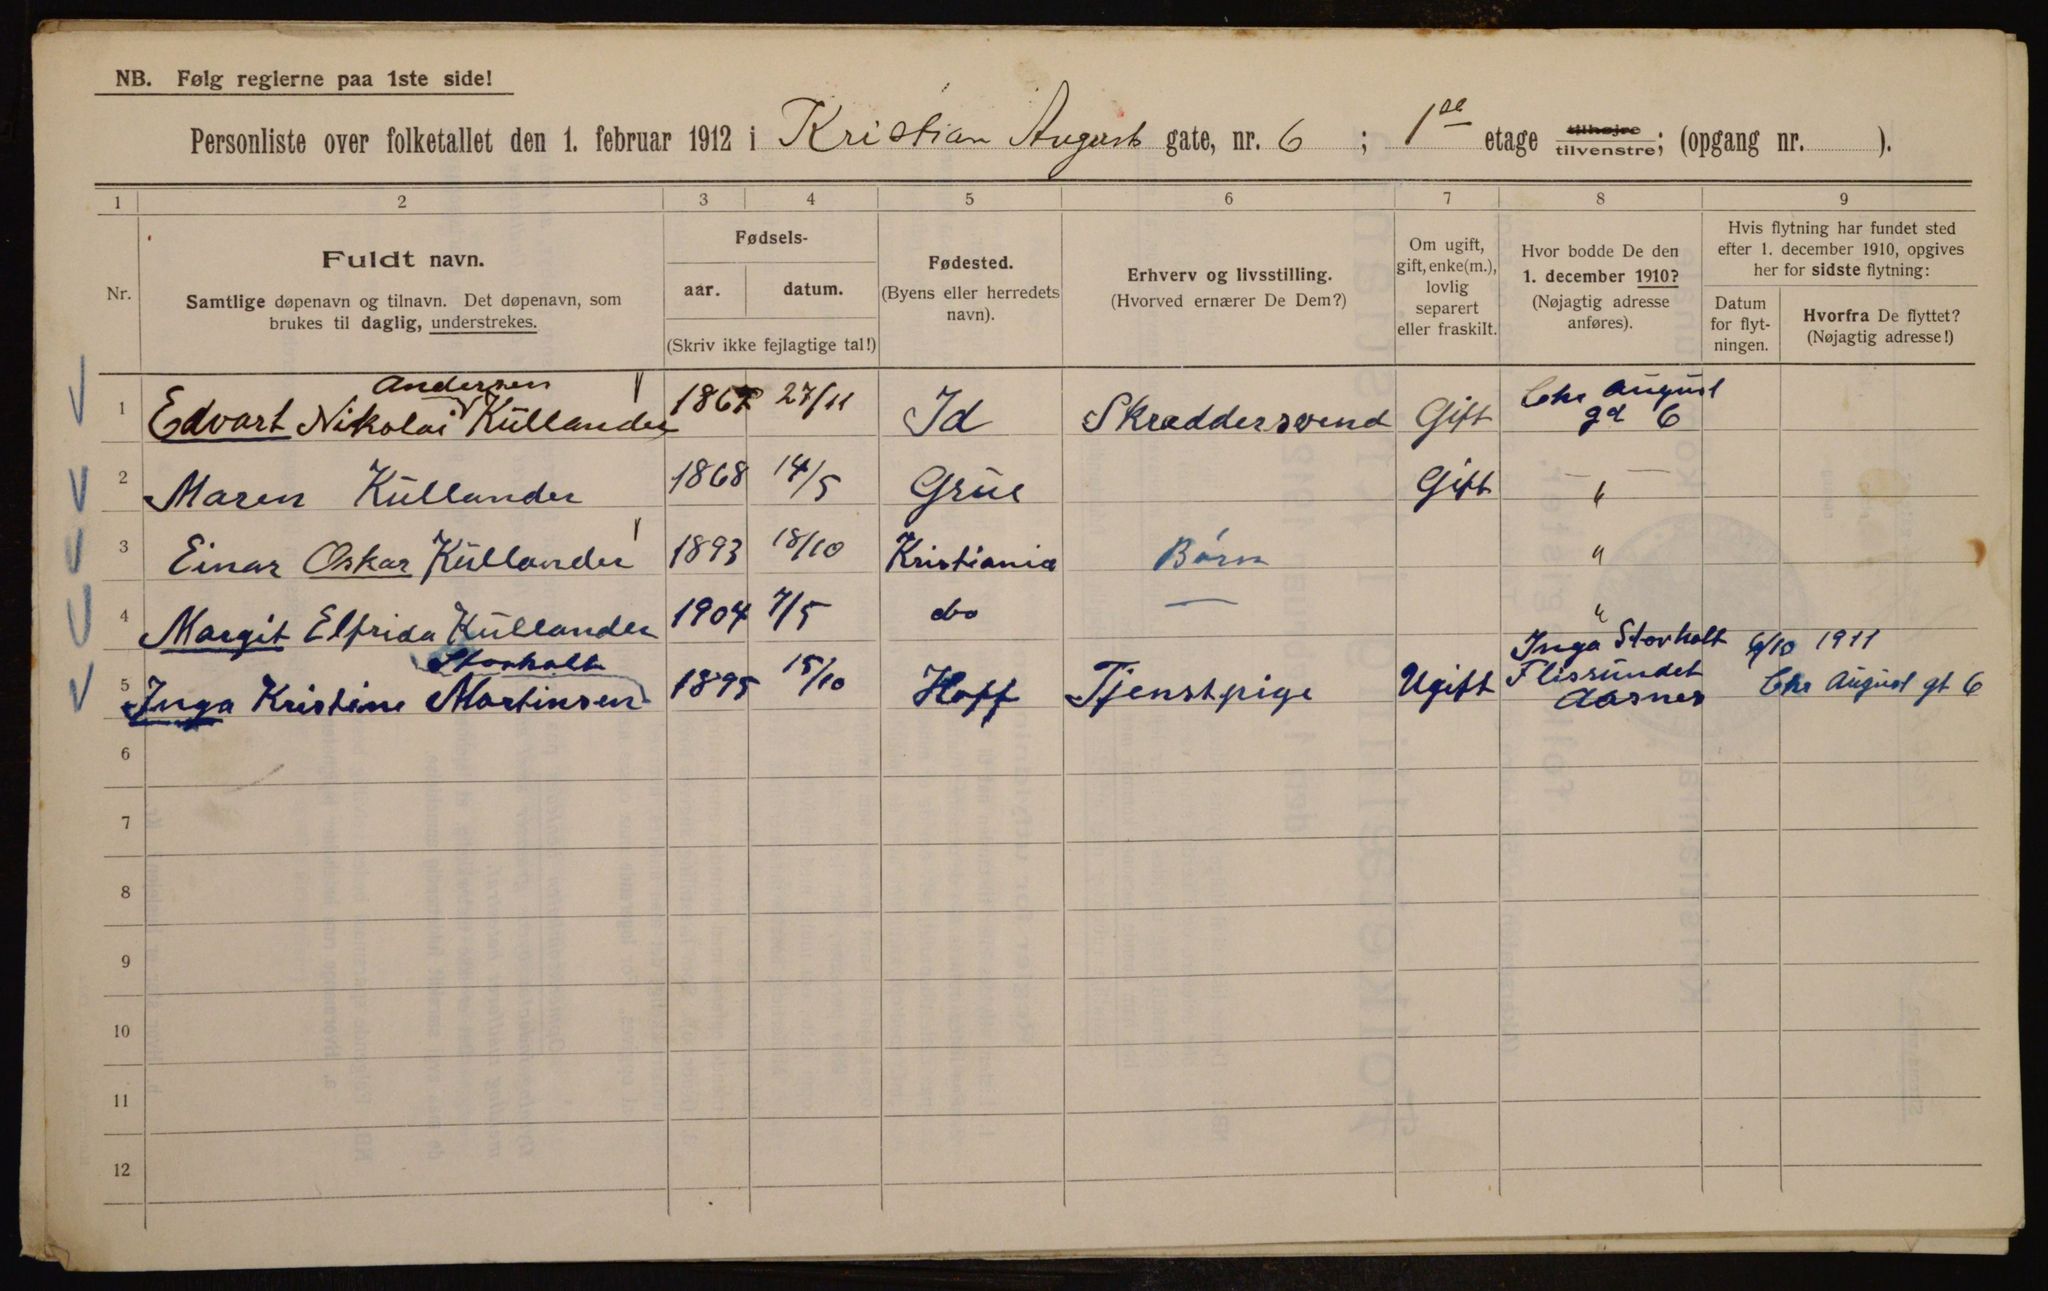 NB. Følg reglerne paa 1ste side!
Personliste over folketallet den 1. februar 1912 i Kristian Augusts gate, nr. 6 ; 1ste etage tilhøjre tilvenstre; (opgang nr. ).
1 2 3 4 5 6 7 8 9
Nr.
Fuldt navn.
Samtlige døpenavn og tilnavn. Det døpenavn, som
brukes til daglig, understrekes.
Fødsels-
aar. datum.
(Skriv ikke fejlagtige tal!)
Fødested.
(Byens eller herredets
navn).
Erhverv og livsstilling.
(Hvorved ernærer De Dem?)
Om ugift,
gift, enke(m.),
lovlig
separert
eller fraskilt.
Hvor bodde De den
1. december 1910?
(Nøjagtig adresse
anføres).
Hvis flytning har fundet sted
efter 1. december 1910, opgives
her for sidste flytning:
Datum
for flyt-
ningen.
Hvorfra De flyttet?
(Nøjagtig adresse!)
Andersen
1 Edvart Nikolai Kullander 27/11 Id Skræddersvend Gift Chr August
gd 6
2 Maren Kullander 1868 14/5 Grue Gift — " —
3 Einar Oskar Kullander 1893 18/10 Kristiania Børn "
4 Margit Elfrida Kullander 1904 7/5 do — "
Storholt
5 Inga Kristine Martinsen 1895 15/10 Hoff Tjenstpige Ugift Inga Storholt
Flissundet
Aasnes
6/10 1911
Chr August gt 6
6
7
8
9
10
11
12